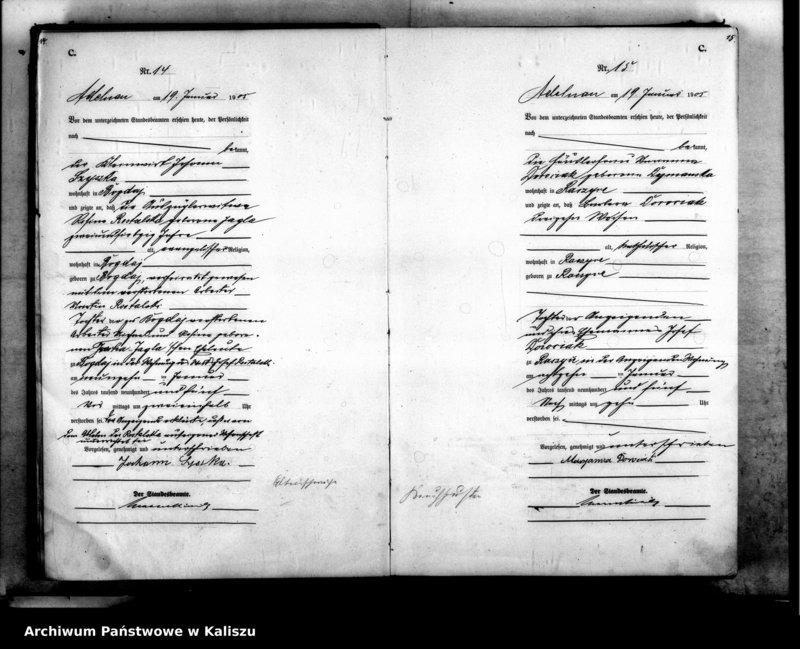 C.
Nr. 14
Adelnau am 19. Januar 1905
Vor dem unterzeichneten Standesbeamten erschien heute, der Persönlichkeit
nach
bekannt,
der Johann
Lyszka
wohnhaft in Bogdaj
und zeigte an, daß die
Rosina Rostalska geborene Jagla
zweiundsiebzig Jahre
alt, evangelischer Religion,
wohnhaft in Bogdaj
geboren zu Bogdaj, verheiratet gewesen
mit dem verstorbenen Arbeiter
Martin Rostalski
Tochter der zu Bogdaj verstorbenen
Arbeiter und Rosina gebore-
nen Jagla'schen Eheleute
zu Bogdaj in
am neunzehnten Januar
des Jahres tausend neunhundert und fünf
Vor mittags um Uhr
verstorben sei. Der Anzeigende erklärte, daß er von
dem Ableben der Rostalska aus eigener Wissenschaft
unterrichtet sei
Vorgelesen, genehmigt und unterschrieben
Johann Lyszka.
Der Standesbeamte.
15
C.
Nr. 15
Adelnau am 19. Januar 1905
Vor dem unterzeichneten Standesbeamten erschien heute, der Persönlichkeit
nach
bekannt,
die Häuslerfrau Marianna
Dorociak geborene Szymanska
wohnhaft in Raczyce
und zeigte an, daß Barbara Dorociak
dreizehn Wochen
alt, katholischer Religion,
wohnhaft in Raczyce
geboren zu Raczyce
Tochter der Anzeigenden
und ihres Ehemannes Josef
Dorociak
zu Raczyce in der Anzeigenden Wohnung
am achtzehnten Januar
des Jahres tausend neunhundert und fünf
Nach mittags um zehn Uhr
verstorben sei.
Vorgelesen, genehmigt und unterschrieben
Maryanna Dorociak
Der Standesbeamte.
Altersschwäche
Keuchhusten
Archiwum Państwowe w Kaliszu